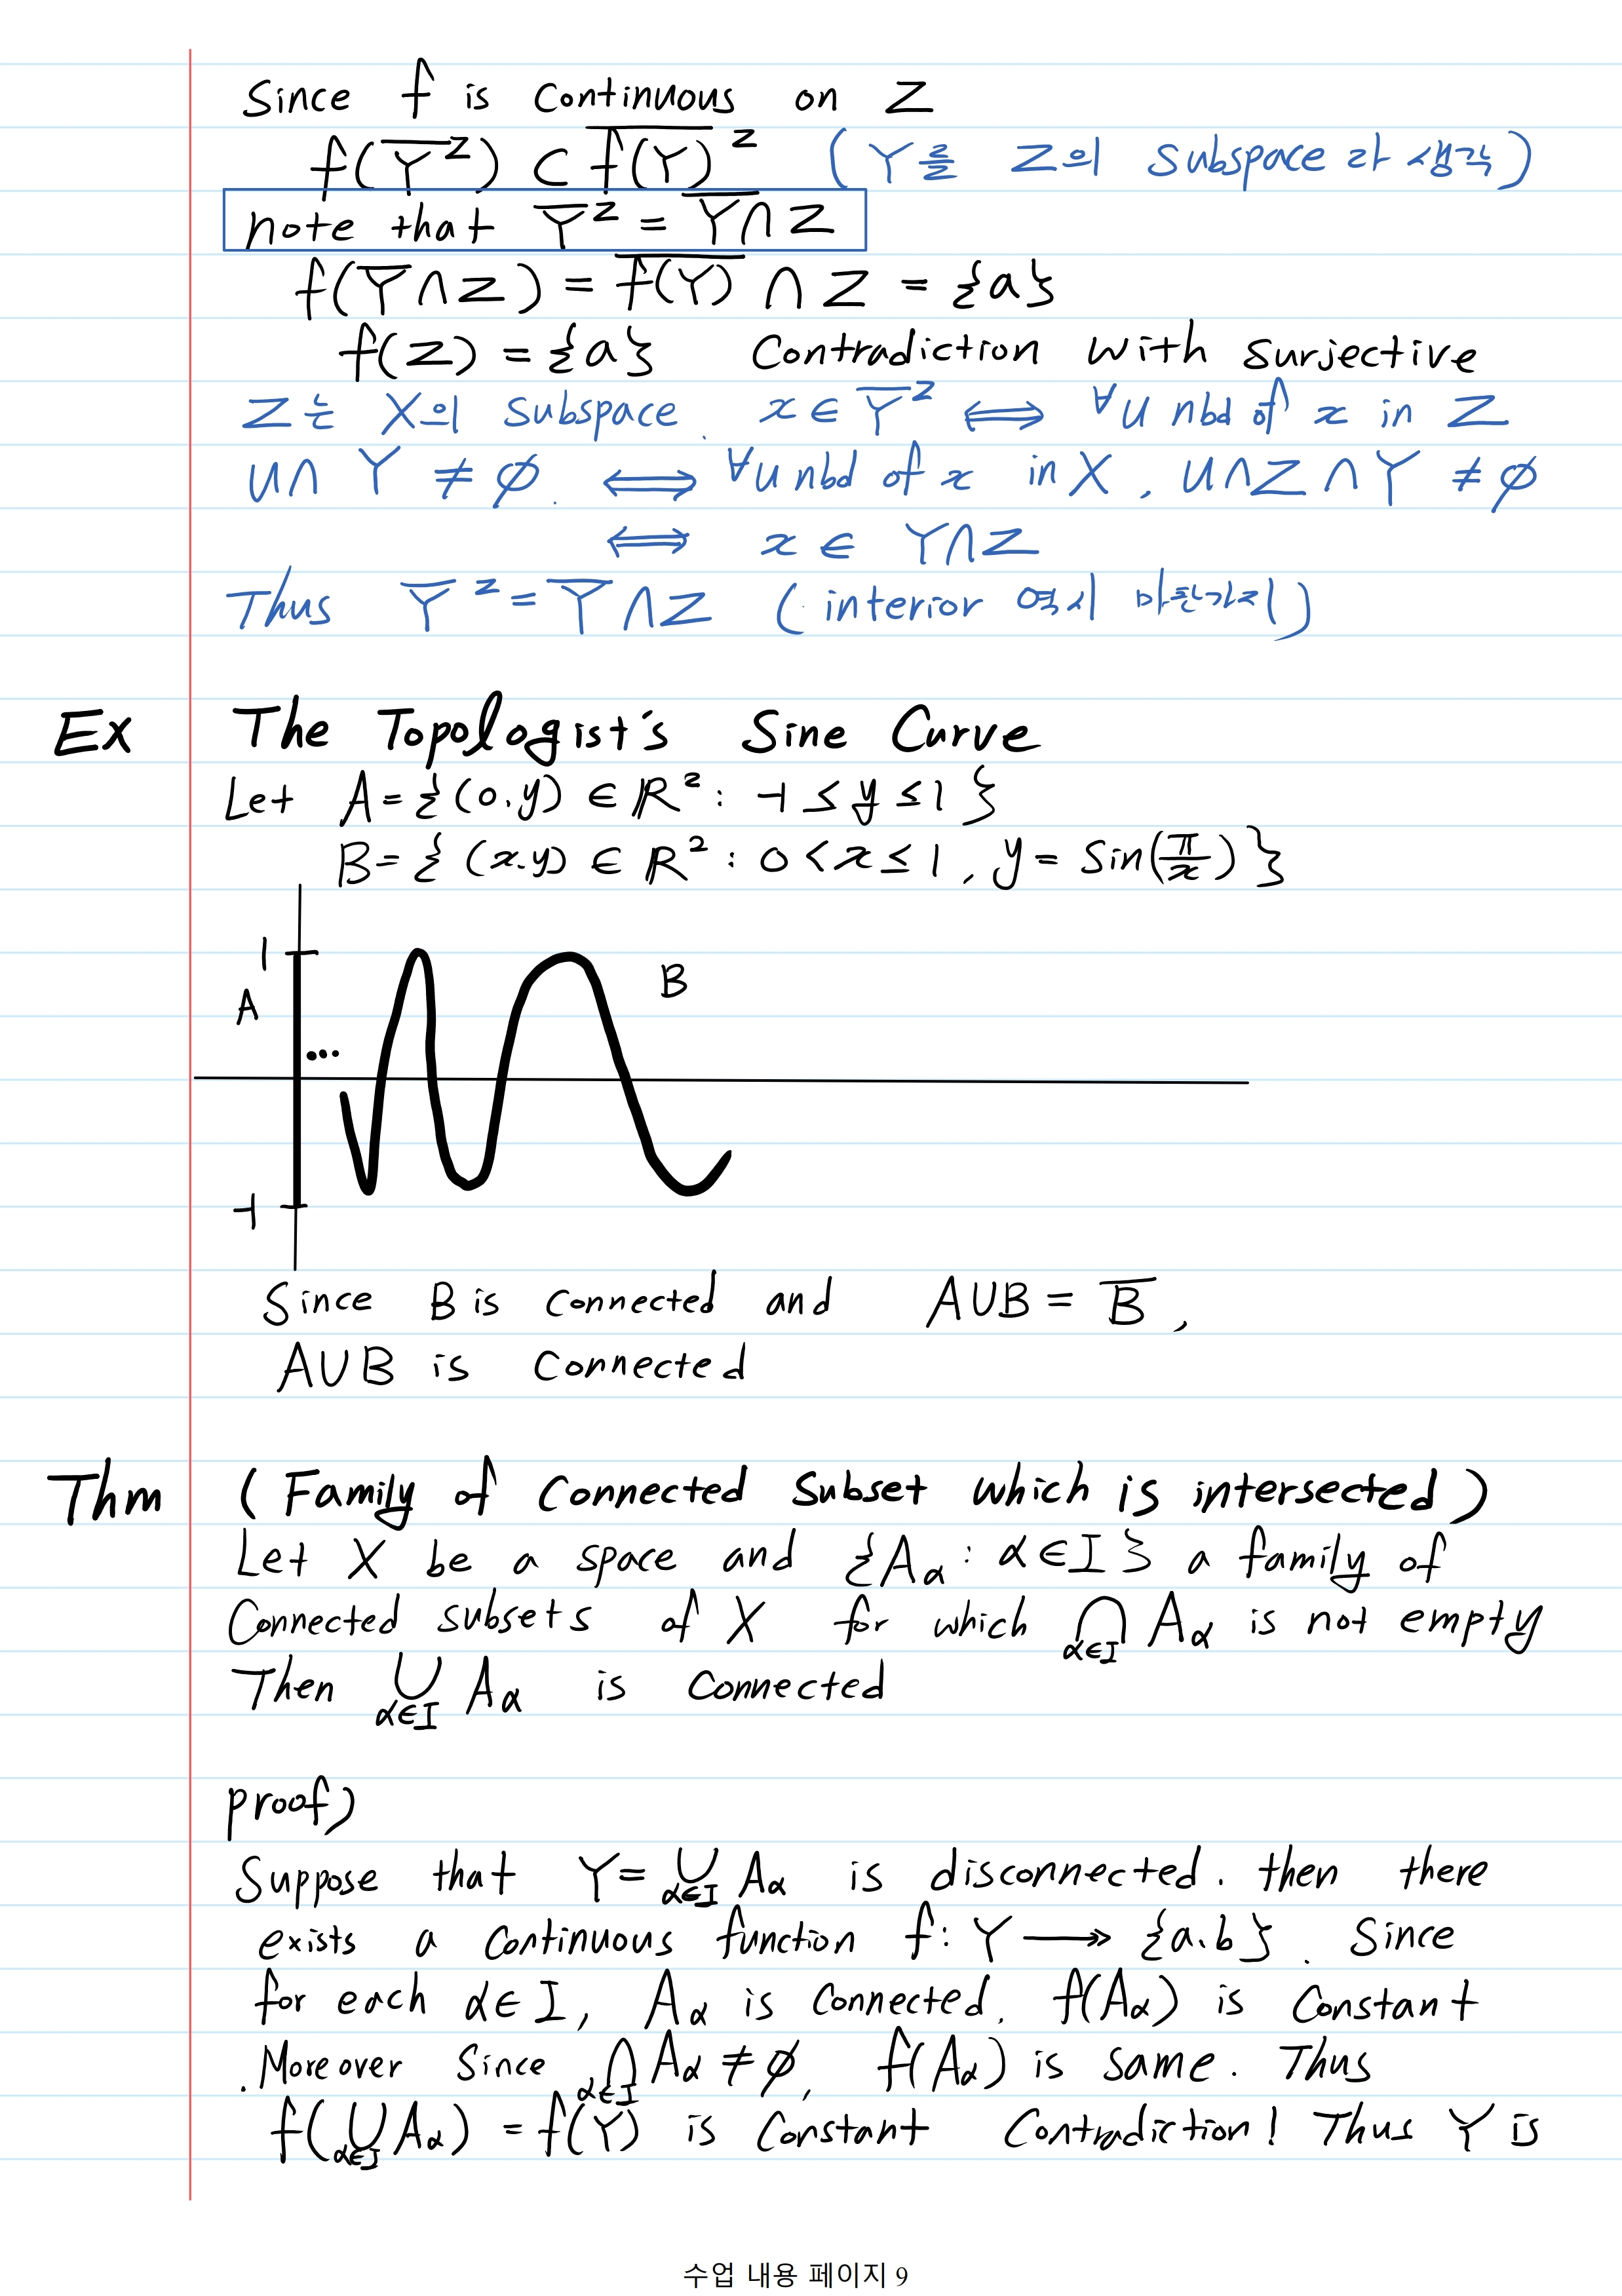 Since f is continuous on Z
f(Y̅ᶻ) ⊂ f̅(̅Y̅)̅ᶻ (Y를 Z의 subspace라 생각)
note that Y̅ᶻ = Y̅∩Z
f(Y̅∩Z) = f̅(̅Y̅)̅ ∩ Z = {a}
f(Z) = {a} Contradiction with surjective
Z는 X의 subspace. x ∈ Y̅ᶻ ⟺ ∀U nbd of x in Z
U∩Y ≠ ∅. ⟺ ∀U nbd of x in X, U∩Z∩Y ≠ ∅
⟺ x ∈ Y∩Z
Thus Y̅ᶻ = Y̅∩Z (interior 역시 마찬가지)
Ex The Topologist's Sine Curve
Let A = {(0.y) ∈ R² : -1 ≤ y ≤ 1}
B = {(x.y) ∈ R² : 0 < x ≤ 1, y = Sin(π/x)}
1
A
B
...
-1
Since B is connected and A∪B = B̅,
A∪B is Connected
Thm (Family of Connected Subset which is intersected)
Let X be a space and {Aα : α∈I} a family of
Connected subsets of X for which ⋂α∈I Aα is not empty
Then ⋃α∈I Aα is Connected
proof)
Suppose that Y = ⋃α∈I Aα is disconnected. then there
exists a continuous function f: Y ⟶ {a.b}. Since
for each α∈I, Aα is connected. f(Aα) is Constant
. Moreover since ⋂α∈I Aα ≠ ∅, f(Aα) is same. Thus
f(⋃α∈I Aα) = f(Y) is Constant Contradiction! Thus Y is
수업 내용 페이지 9